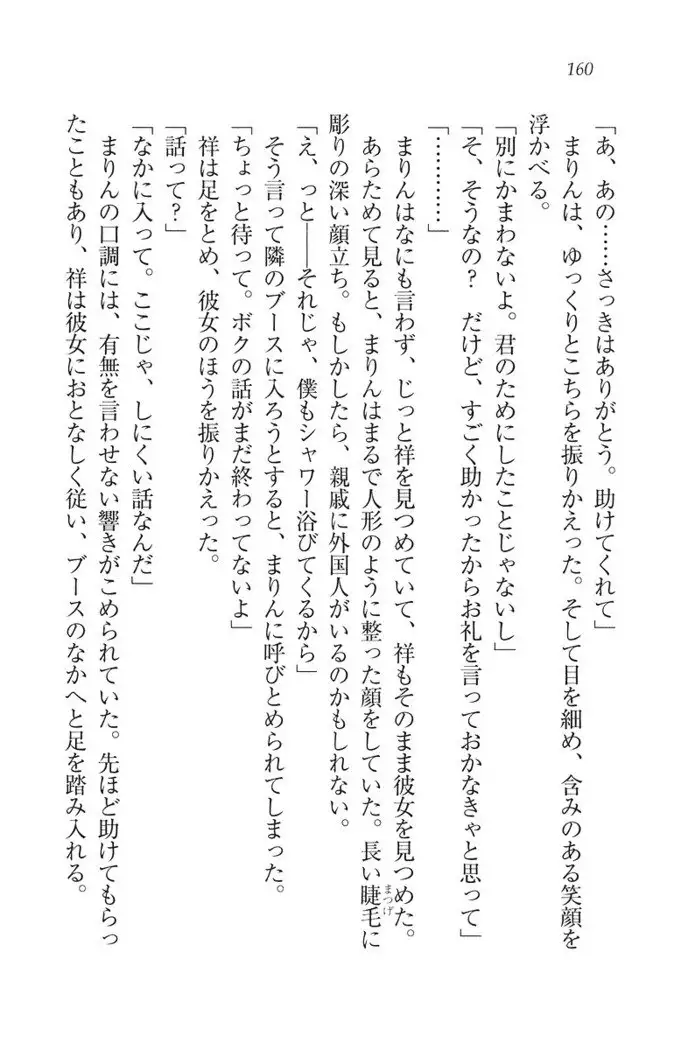 160
「あ、あの……さっきはありがとう。助けてくれて」
まりんは、ゆっくりとこちらを振りかえった。そして目を細め、含みのある笑顔を
浮かべる。
「別にかまわないよ。君のためにしたことじゃないし」
「そ、そうなの？　だけど、すごく助かったからお礼を言っておかなきゃと思って」
「…………」
まりんはなにも言わず、じっと祥を見つめていて、祥もそのまま彼女を見つめた。
あらためて見ると、まりんはまるで人形のように整った顔をしていた。長い睫毛に
まつげ
彫りの深い顔立ち。もしかしたら、親戚に外国人がいるのかもしれない。
「え、っと――それじゃ、僕もシャワー浴びてくるから」
そう言って隣のブースに入ろうとすると、まりんに呼びとめられてしまった。
「ちょっと待って。ボクの話がまだ終わってないよ」
祥は足をとめ、彼女のほうを振りかえった。
「話って？」
「なかに入って。ここじゃ、しにくい話なんだ」
まりんの口調には、有無を言わせない響きがこめられていた。先ほど助けてもらっ
たこともあり、祥は彼女におとなしく従い、ブースのなかへと足を踏み入れる。